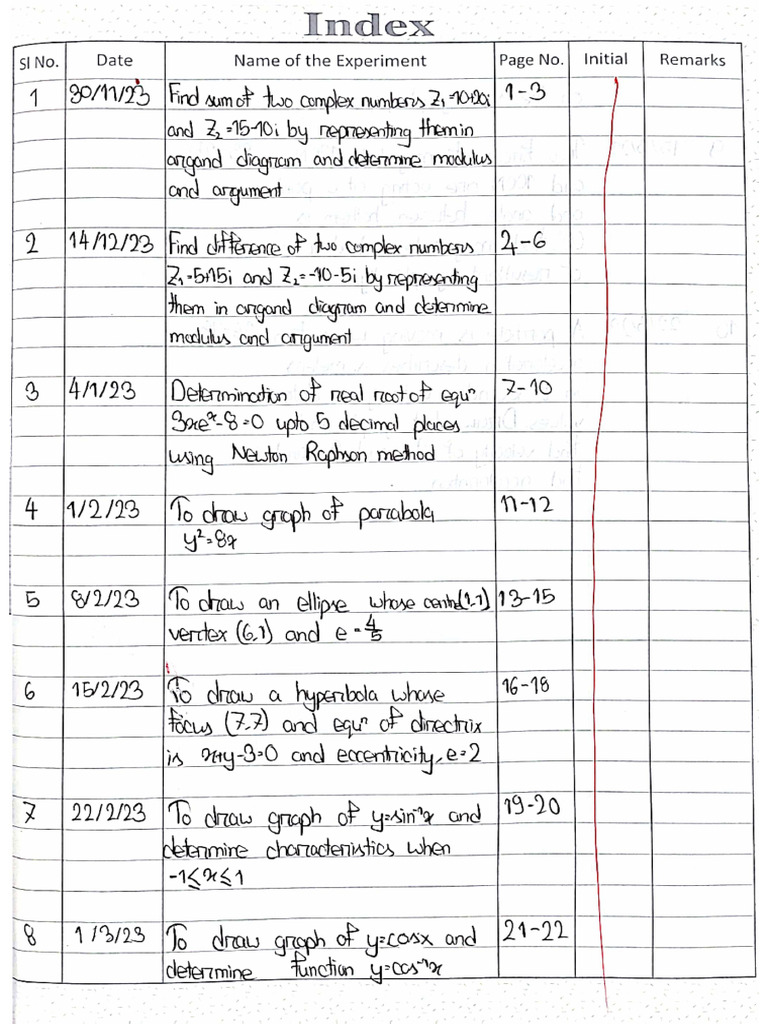 Index
Sl No. Date Name of the Experiment Page No. Initial Remarks
1 30/11/23 Find sum of two complex numbers Z₁=10+20i 1-3
and Z₂=15-10i by representing them in
argand diagram and determine modulus
and argument
2 14/12/23 Find difference of two complex numbers 4-6
Z₁=5+15i and Z₂=-10-5i by representing
them in argand diagram and determine
modulus and argument
3 4/1/23 Determination of real root of equⁿ 7-10
3xeˣ-8=0 upto 5 decimal places
using Newton Raphson method
4 1/2/23 To draw graph of parabola 11-12
y²=8x
5 8/2/23 To draw an ellipse whose centre(1,1) 13-15
vertex (6,1) and e=4/5
6 15/2/23 To draw a hyperibola whose 16-18
focus (7,7) and equⁿ of directrix
is x+y-3=0 and eccentricity, e=2
7 22/2/23 To draw graph of y=sin⁻¹x and 19-20
determine characteristics when
-1≤x≤1
8 1/3/23 To draw graph of y=cosx and 21-22
determine function y=cos⁻¹x